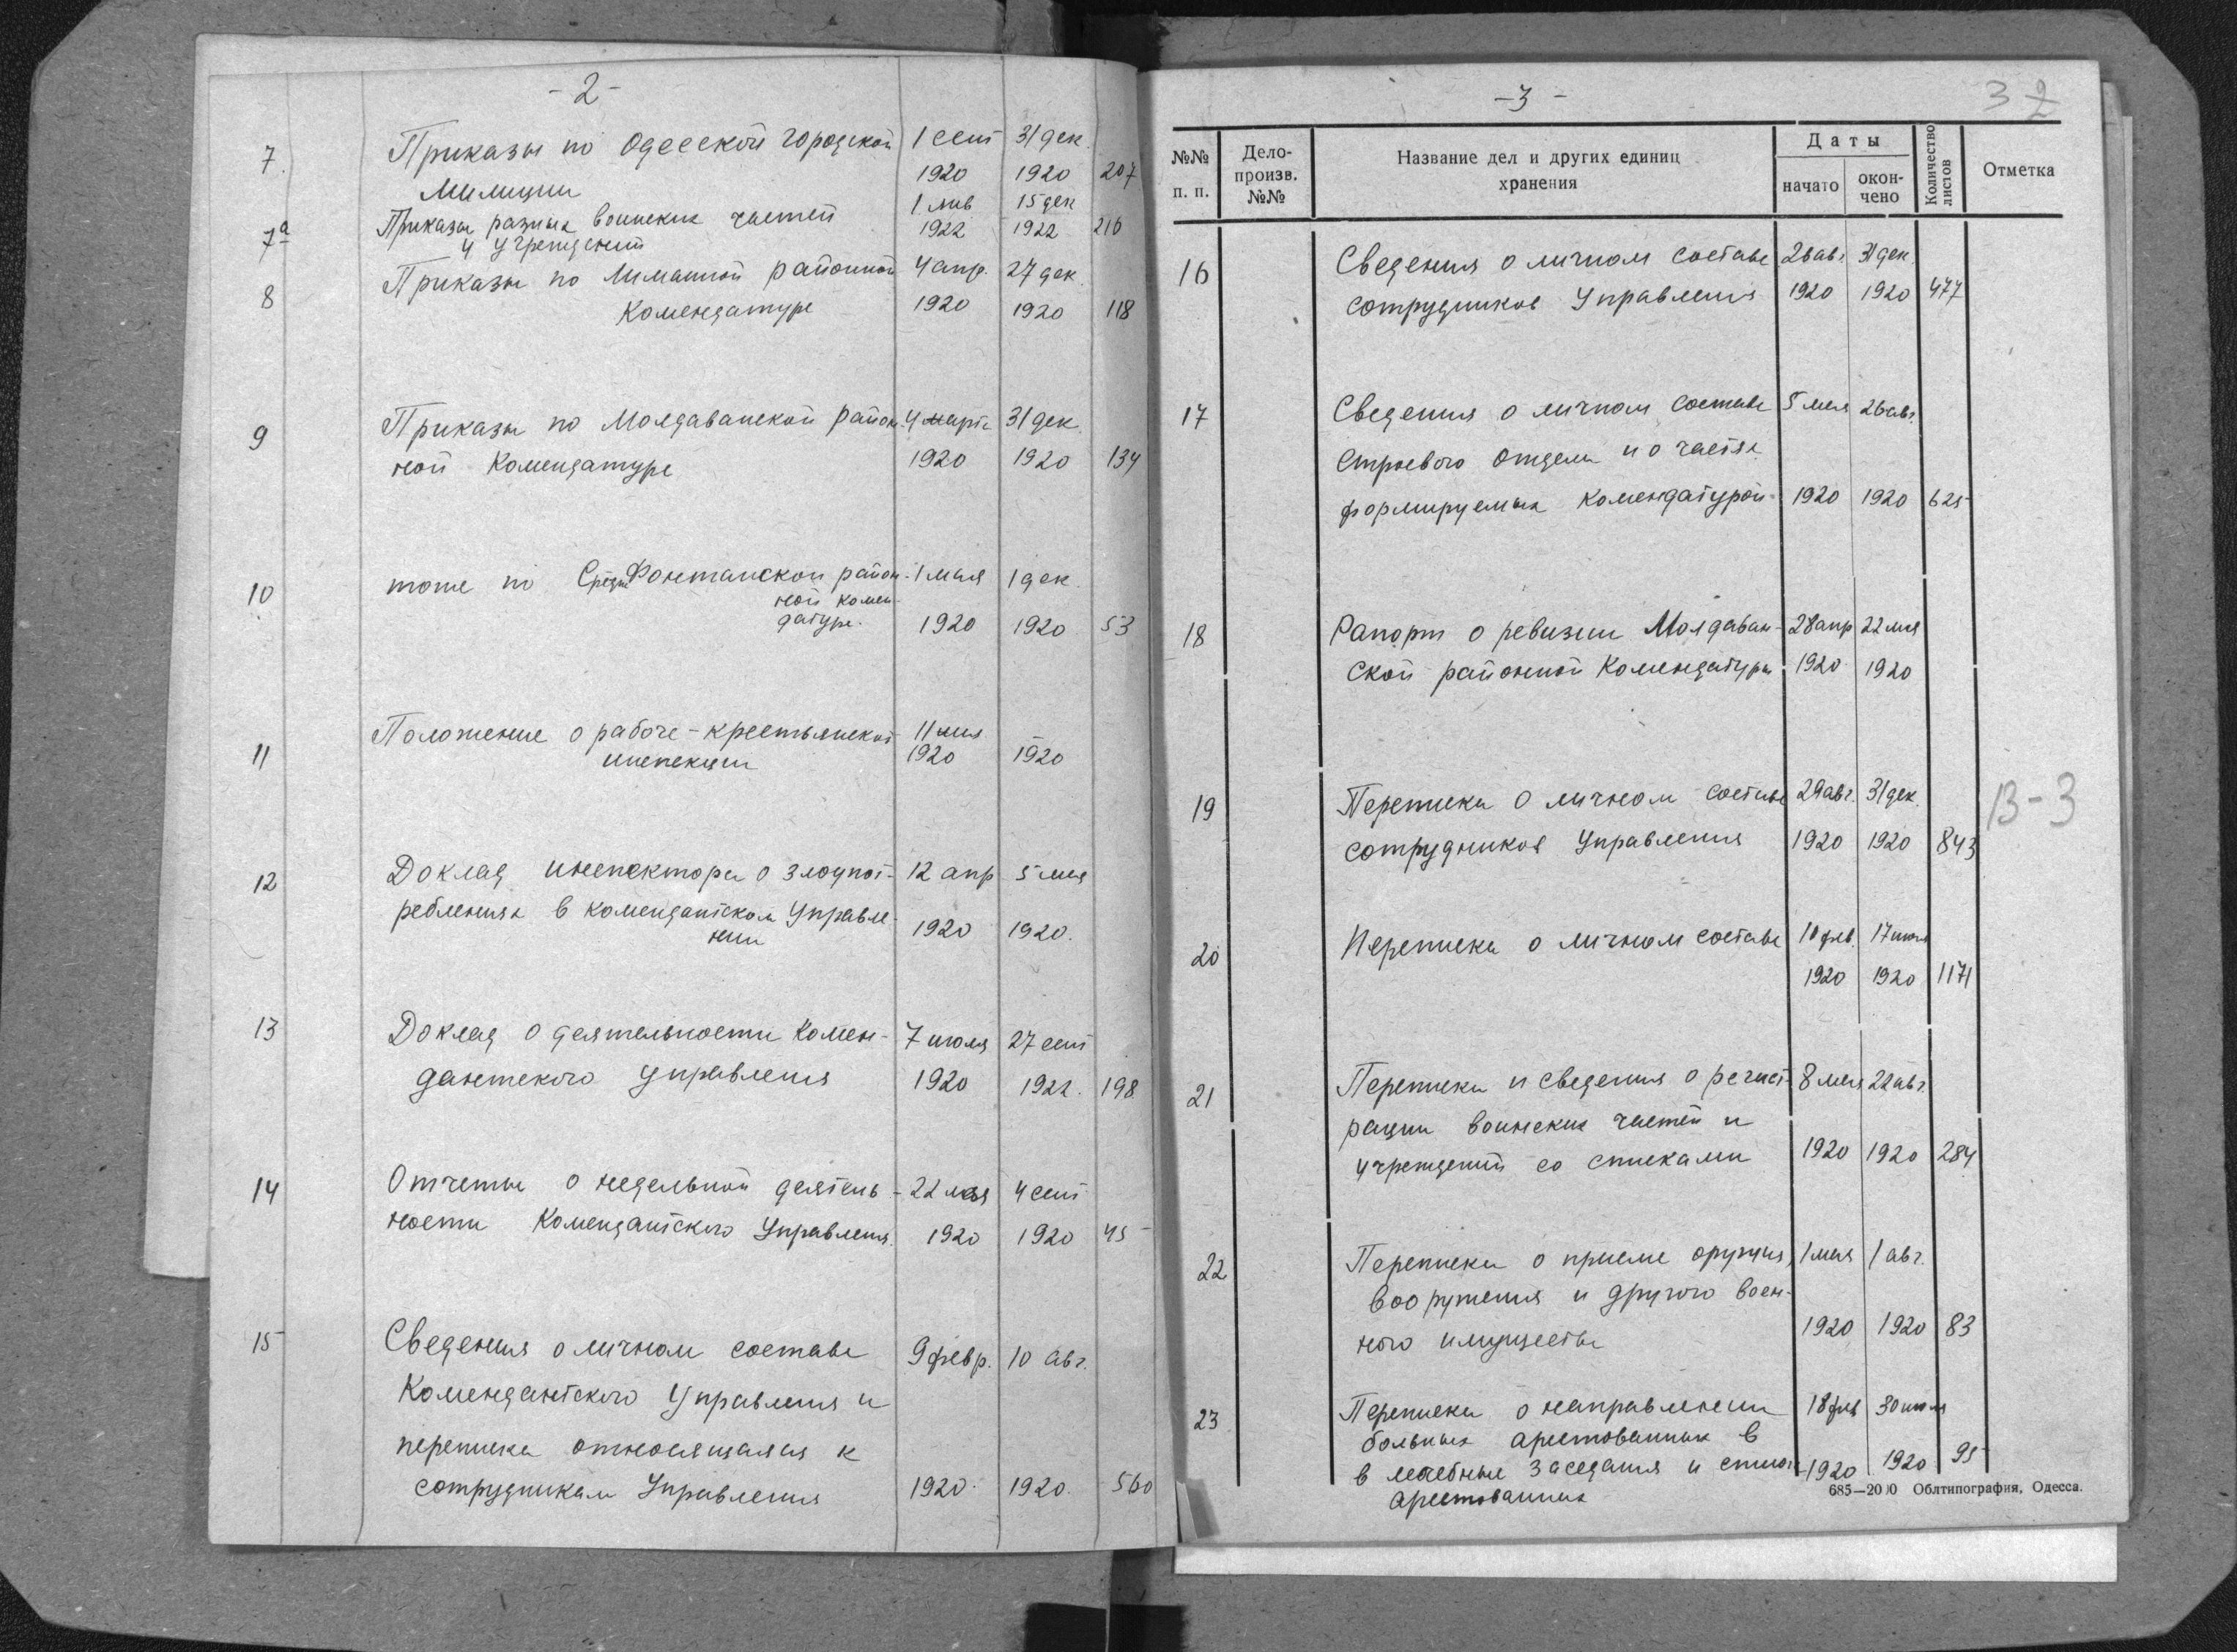 - 2 -
7. Приказы по Одесской городской 1 сент 31 дек.
милиции 1920 1920 207
7а Приказы разных воинских частей 1 янв 15 дек
и учреждений 1922 1922 216
8 Приказы по Лиманной районной 4 апр. 27 дек.
Комендатуре 1920 1920 118
9 Приказы по Молдаванской район- 4 марта 31 дек.
ной Комендатуре 1920 1920 134
10 тоже по Средне Фонтанской район- 1 мая 1 дек.
ной комен-
датуре. 1920 1920 53
11 Положение о рабоче-крестьянской 11 мая
инспекции 1920 1920
12 Доклад инспектора о злоупот- 12 апр 5 мая
реблениях в комендантском Управле- 1920 1920.
нии
13 Доклад о деятельности Комен- 7 июля 27 сент
дантского Управления 1920 1922. 198
14 Отчеты о недельной деятель- 22 мая 4 сент
ности Комендантского Управления. 1920 1920 45
15 Сведения о личном составе 9 февр. 10 авг.
Комендантского Управления и
переписка относящаяся к
сотрудникам Управления 1920. 1920. 560
- 3 -
3 2
№№
п. п.
Дело-
произв.
№№
Название дел и других единиц
хранения
Даты
начато
окон-
чено
Количество
листов
Отметка
16 Сведения о личном составе 28 авг. 31 дек.
сотрудников Управления 1920 1920 477
17 Сведения о личном составе 5 мая 26 авг.
Строевого отдела и о частях
формируемых Комендатурой 1920 1920 625
18 Рапорт о ревизии Молдаван- 28 апр 22 мая
ской районной Комендатуры 1920 1920
19 Переписка о личном составе 29 авг. 31 дек.
сотрудников Управления 1920 1920 843
В-3
20 Переписка о личном составе 10 фев. 17 июля
1920 1920 1171
21 Переписка и сведения о регист- 8 мая 22 авг.
рации воинских частей и
учреждений со списками 1920 1920 284
22 Переписка о приеме оружия, 1 мая 1 авг.
вооружения и другого воен-
ного имущества 1920 1920 83
23 Переписка о направлении 18 фев 30 июля
больных арестованных в
в лечебные заседания и списки 1920 1920 95
арестованных
685—2000 Облтипография, Одесса.